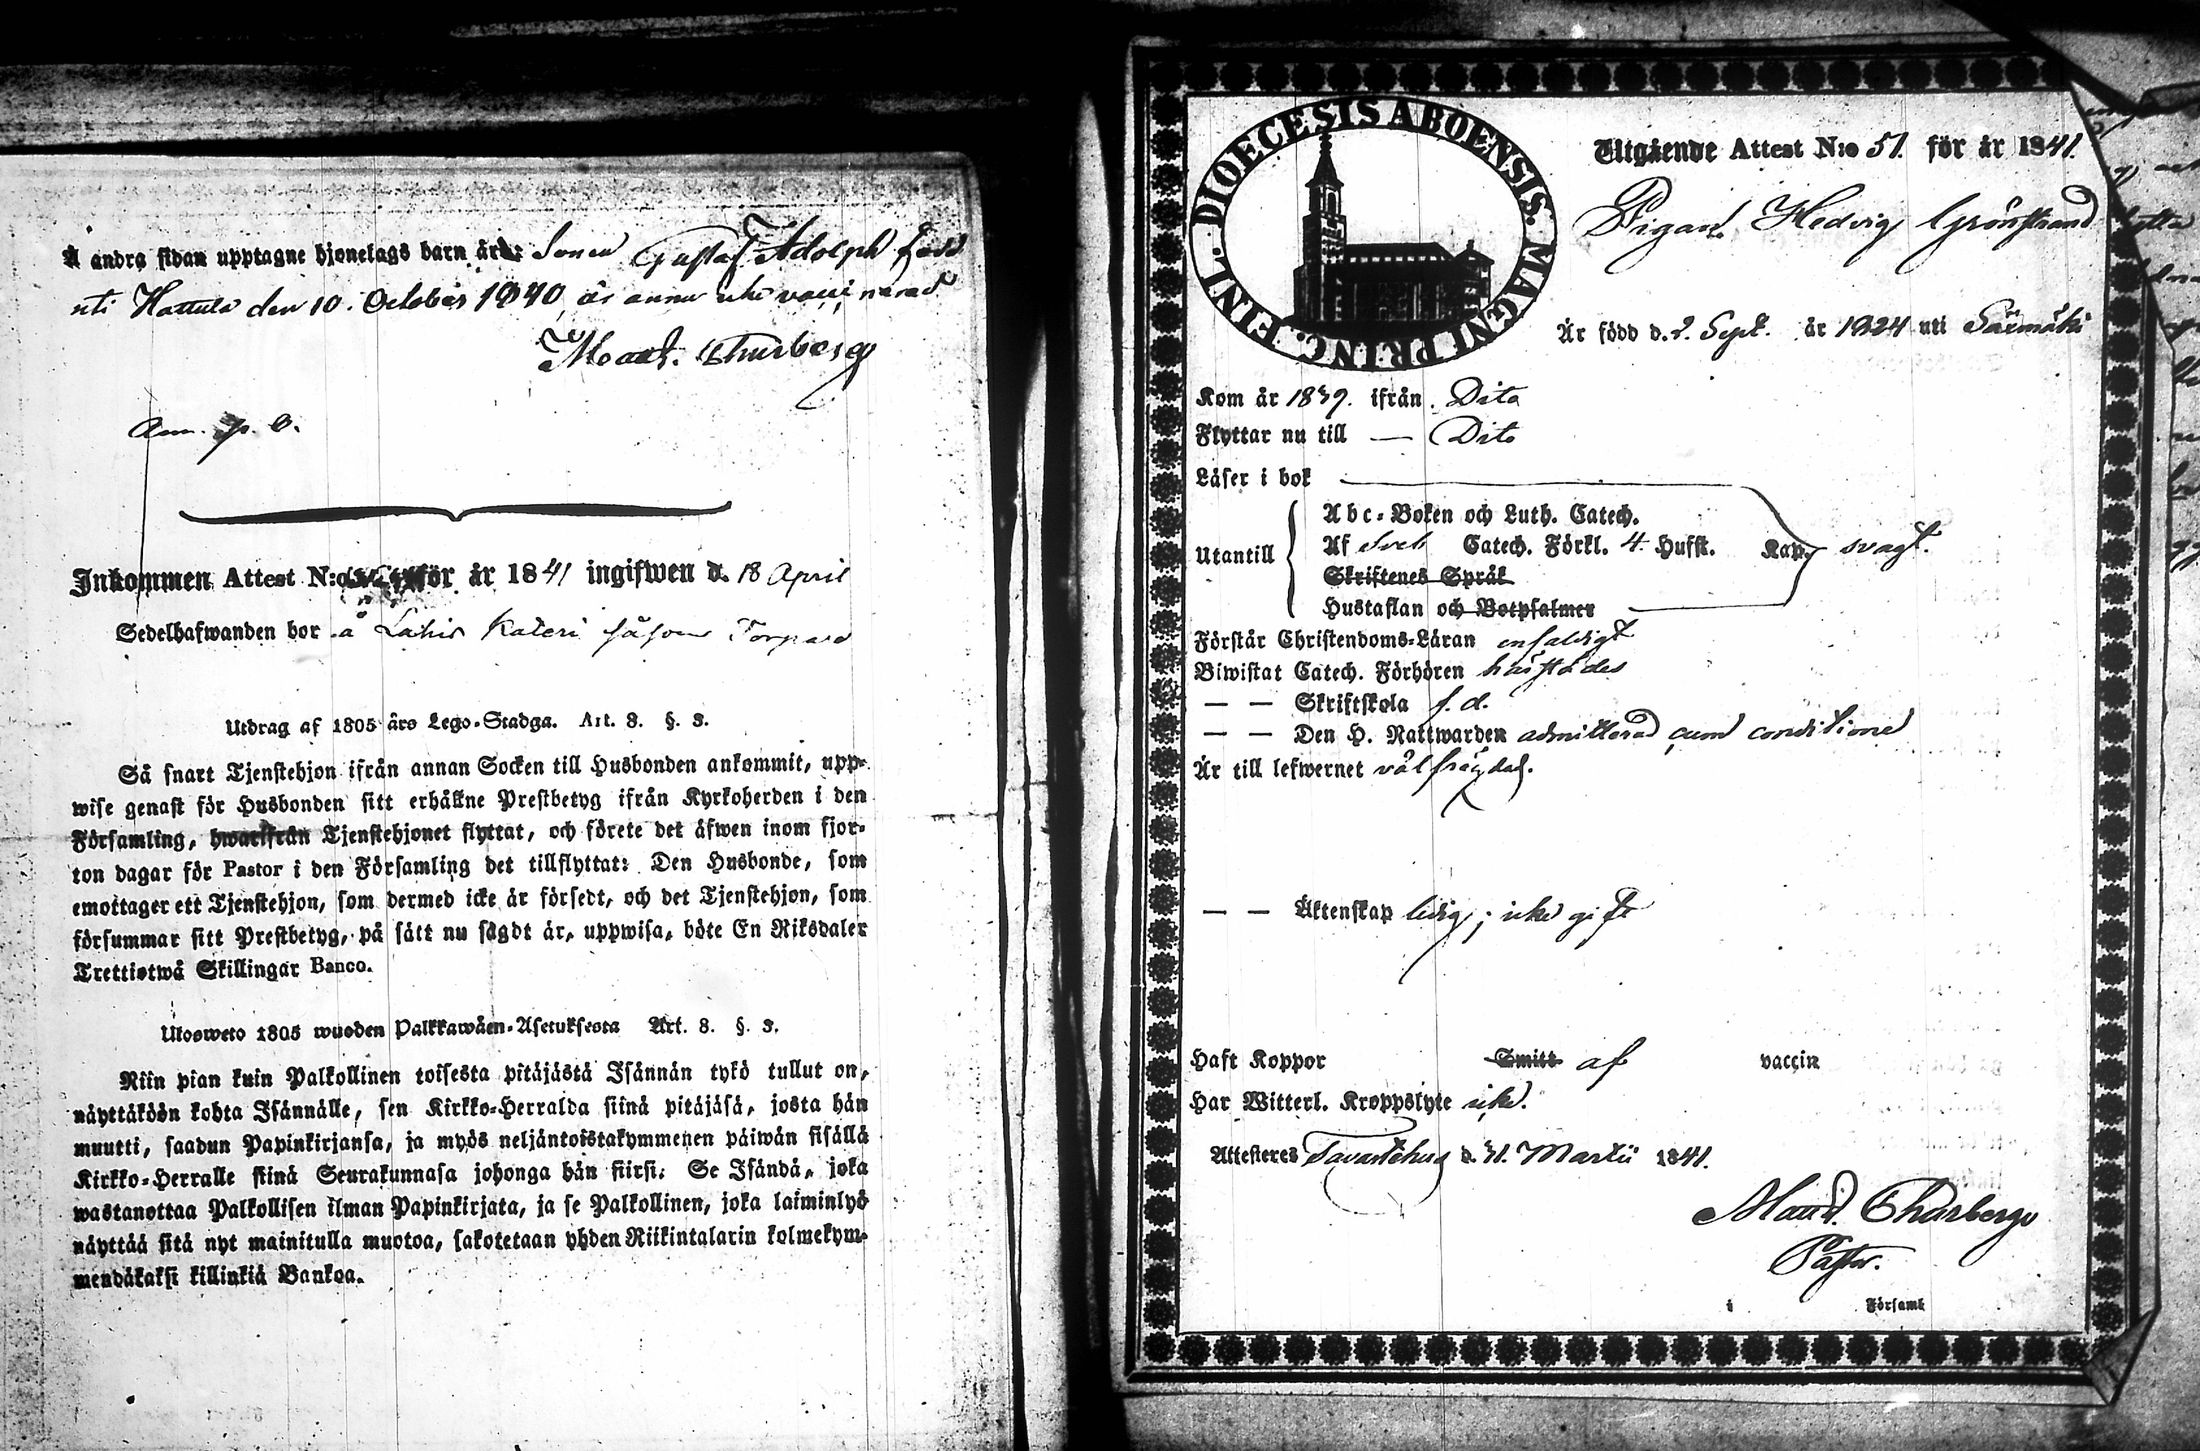 Å andra sidan upptagne hjonelags barn är: Sonen Gustaf Adolph född
uti Hattula den 10. October 1840, är ännu icke vaccinerad
Maur. Thurberg
Ann. p. o.
Inkommen Attest N:o för år 1841 ingifwen d. 18 April
Sedelhafwanden bor å Lahis Kateri såsom Torpare
Utdrag af 1805 års Lego-Stadga. Art. 8. §. 3.
Så snart Tjenstehjon ifrån annan Socken till Husbonden ankommit, upp-
wise genast för Husbonden sitt erhållne Prestbetyg ifrån Kyrkoherden i den
Församling, hwarifrån Tjenstehjonet flyttat, och förete det äfwen inom fjor-
ton dagar för Pastor i den Församling det tillflyttat: Den Husbonde, som
emottager ett Tjenstehjon, som dermed icke är försedt, och det Tjenstehjon, som
försummar sitt Prestbetyg, på sätt nu sagdt är, uppwisa, böte En Riksdaler
Trettiotwå Skillingar Banco.
Ulosweto 1805 wuoden Palkkawäen-Asetuksesta Art. 8. §. 3.
Niin pian kuin Palkollinen toisesta pitäjästä Isännän tykö tullut on,
näyttäköön kohta Isännälle, sen Kirkko-Herralda siinä pitäjäsä, josta hän
muutti, saadun Papinkirjansa, ja myös neljäntoistakymmenen päiwän sisällä
Kirkko-Herralle siinä Seurakunnasa johonga hän siirsi: Se Isändä, joka
wastanottaa Palkollisen ilman Papinkirjata, ja se Palkollinen, joka laiminlyö
näyttää sitä nyt mainitulla muotoa, sakotetaan yhden Riikintalarin kolmekym-
mendäkaksi killinkiä Bankoa.
DIOECESIS ABOENSIS. MAGNI PRINC. FINL.
Utgående Attest N:o 51. för år 1841.
Pigan Hedvig Grönstrand
Är född d. 2. Sept. år 1824 uti Säxmäki
Kom år 1839. ifrån Dito
Flyttar nu till — Dito
Läser i bok
Utantill
Abc-Boken och Luth. Catech.
Af Sveb Catech. Förkl. 4. Husst. Kap. svagt.
Skriftenes Språk
Hustaflan och Botpsalmer
Förstår Christendoms-Läran enfaldigt
Biwistat Catech. Förhören härstädes
— — Skriftskola f. d.
— — Den H. Nattwarden admitterad cum conditione
Är till lefwernet välfrägdad.
— — Äktenskap ledig; icke gift
Haft Koppor Smitt af vaccin
Har Witterl. Kroppslyte icke.
Attesteres Tavastehus d. 31. Martii 1841.
Maur. Thurberg
Pastor.
i Församl